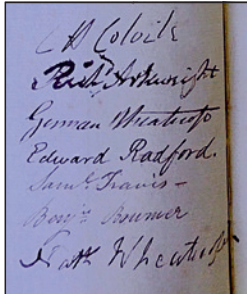 C H Colvile
Richd Arkwright
German Wheatcroft
Edward Radford.
Saml. Travis -
Benjn
Nath Wheatcroft